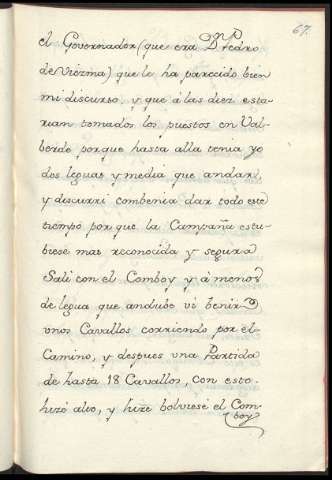 67.
el Governador (que era Dn Pedro
de Viezma) que le ha parecido bien
mi discurso, y que á las diez esta-
rian tomados los puestos en Val-
berde porque hasta alla tenia yo
dos leguas y media que andar,
y discurri combenia dar todo este
tiempo por que la Campaña estu-
biese mas reconocida y segura
Sali con el Comboy y á menos
de legua que andube vi benir
unos Cavallos corriendo por el
Camino, y despues una Partida
de hasta 18 Cavallos, con esto
hizé alto, y hize bolviese el Com-
boy